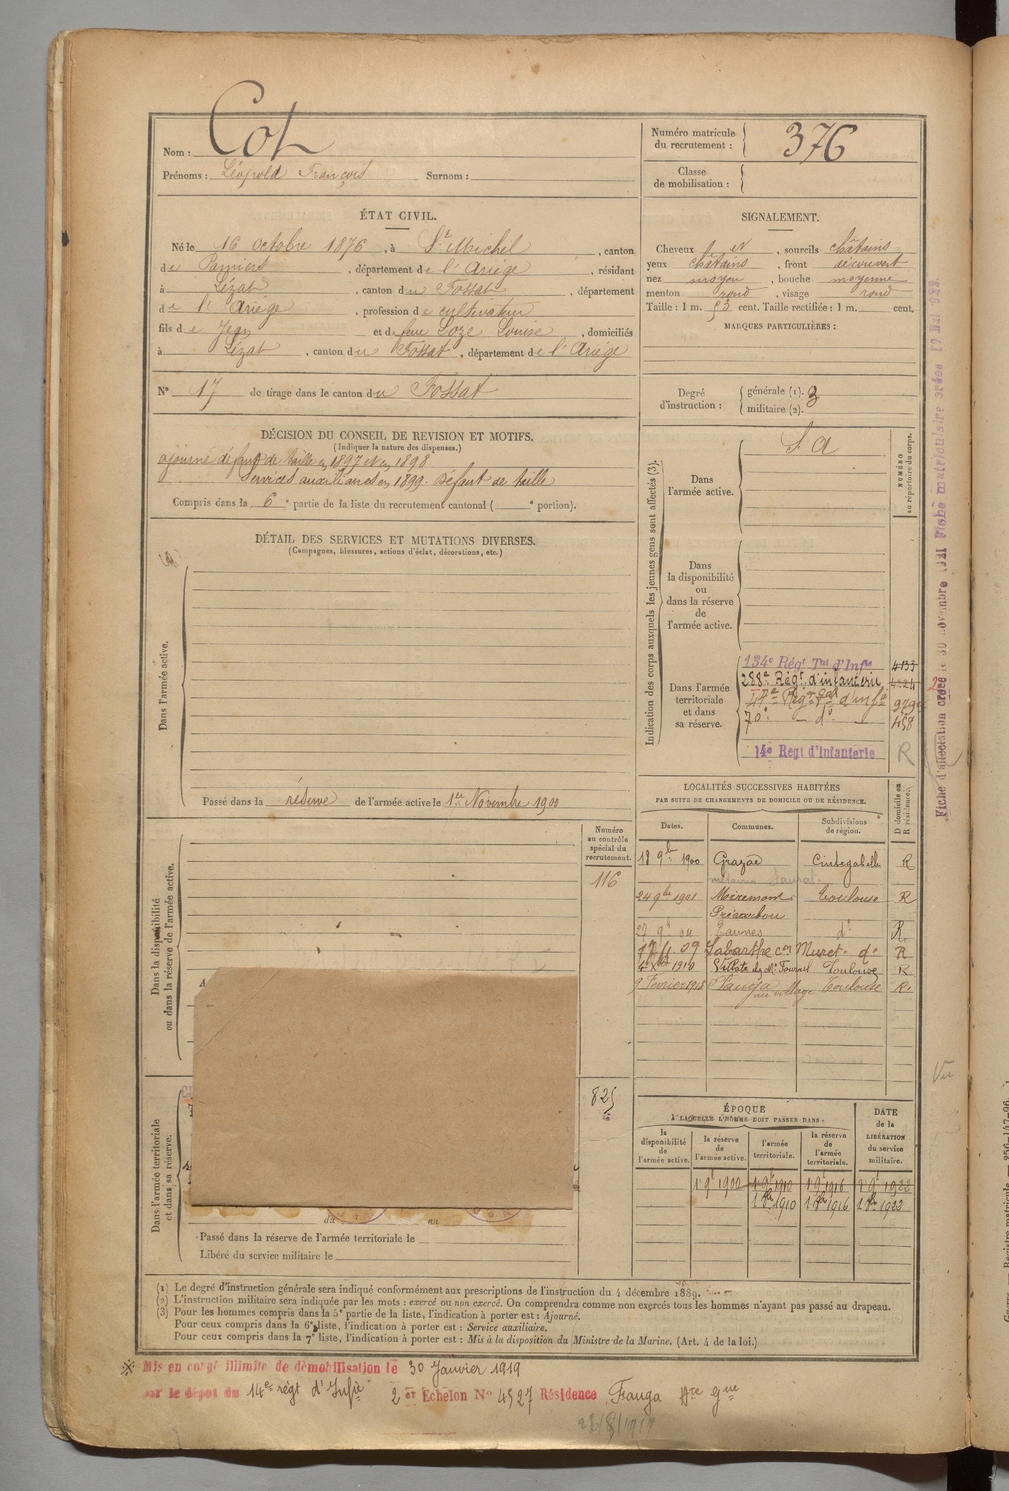 Nom : Cot
Numéro matricule du recrutement : 376
Prénoms : Léopold François Surnom :
Classe de mobilisation :
ÉTAT CIVIL.
Né le 16 octobre 1876, à St Michel, canton
de Pamiers, département de l'Ariège, résidant
à Lézat, canton du Fossat, département
de l'Ariège, profession de cultivateur
fils de Jean et de feue Loze Louise, domiciliés
à Lézat, canton du Fossat, département de l'Ariège
N° 17 de tirage dans le canton du Fossat
SIGNALEMENT.
Cheveux et, sourcils châtains
yeux châtains, front découvert
nez moyen, bouche moyenne
menton rond, visage rond
Taille : 1 m. 53 cent. Taille rectifiée : 1 m. cent.
MARQUES PARTICULIÈRES :
Degré d'instruction : générale (1). 3
militaire (2).
DÉCISION DU CONSEIL DE REVISION ET MOTIFS.
(Indiquer la nature des dispenses.)
ajourné défaut de taille en 1897 et en 1898
Services auxiliaires en 1899. Défaut de taille
Compris dans la 6e partie de la liste du recrutement cantonal ( e portion).
DÉTAIL DES SERVICES ET MUTATIONS DIVERSES.
(Campagnes, blessures, actions d'éclat, décorations, etc.)
Dans l'armée active.
Passé dans la réserve de l'armée active le 1er Novembre 1900
Indication des corps auxquels les jeunes gens sont affectés (3).
NUMÉRO au répertoire du corps.
Dans l'armée active.
S a
Dans la disponibilité ou dans la réserve de l'armée active.
Dans l'armée territoriale et dans sa réserve.
134e Régt Tal d'Infie 4133
288e Régt d'infanterie
70e d° 458
14e Regt d'Infanterie R
LOCALITÉS SUCCESSIVES HABITÉES
PAR SUITE DE CHANGEMENTS DE DOMICILE OU DE RÉSIDENCE.
Dates. Communes. Subdivisions de région. D domicile ou R résidence.
18 9bre 1900 Grazac Cintegabelle R
24 9bre 1901 Miremont Toulouse R
Eaunes d° R
09 Labarthe con Muret d° R
1910 Toulouse R
9 Février 1915 au village Toulouse R.
Dans la disponibilité ou dans la réserve de l'armée active.
Numéro au contrôle spécial du recrutement.
116
825
Dans l'armée territoriale et dans sa réserve.
du au
Passé dans la réserve de l'armée territoriale le
Libéré du service militaire le
ÉPOQUE
À LAQUELLE L'HOMME DOIT PASSER DANS
la disponibilité de l'armée active. la réserve de l'armée active. l'armée territoriale. la réserve de l'armée territoriale.
DATE de la LIBÉRATION du service militaire.
1 9bre 1900 1 9bre 1910 1 9bre 1916 1 9bre 1922
1 8bre 1910 1 8bre 1916 1 8bre 1922
(1) Le degré d'instruction générale sera indiqué conformément aux prescriptions de l'instruction du 4 décembre 1889.
(2) L'instruction militaire sera indiquée par les mots : exercé ou non exercé. On comprendra comme non exercés tous les hommes n'ayant pas passé au drapeau.
(3) Pour les hommes compris dans la 5e partie de la liste, l'indication à porter est : Ajourné.
Pour ceux compris dans la 6e liste, l'indication à porter est : Service auxiliaire.
Pour ceux compris dans la 7e liste, l'indication à porter est : Mis à la disposition du Ministre de la Marine. (Art. 4 de la loi.)
Mis en congé illimité de démobilisation le 30 Janvier 1919
par le dépôt du 14e régt d'Infie 2er Echelon N° 4527 Résidence Frauga Hte Gne
Vu